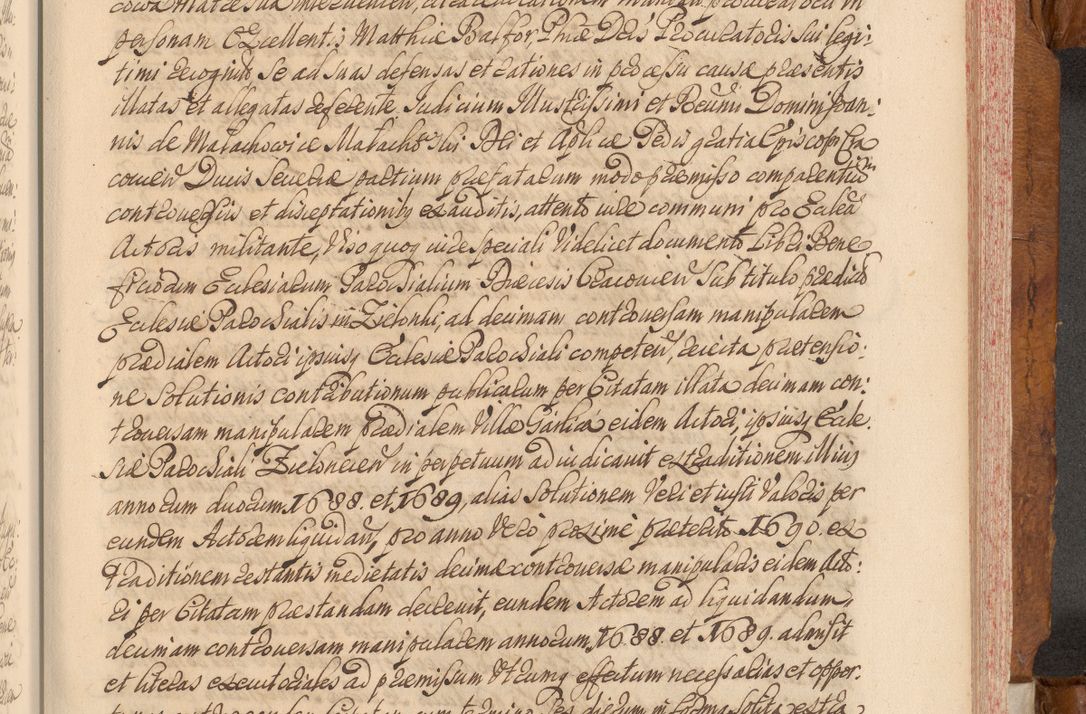 personam Excellentis Matthiæ Balfor, Phiæ Dris Procuratoris sui legi:
timi recognito se ad suas defensas et rationes in processu causæ præsentis
illatas et allegatas referente Judicium Illustrissimi et Reñmi Domini Joan:
nis de Małachowice Małachowski Dei et Aplicæ Sedis gratia Episcopi Cra
covieñ Ducis Severiæ partium præfatarum modo præmisso comparentium
controversiis et disceptationibq exauditis, attento iure communi pro Eclea
Actoris militante, Viso quoq iure speciali Videlicet documento Libri Bene
ficiorum Eclesiarum Parochialium Diæcesis Cracovieñ Sub titulo prædictæ
Eclesiæ Parochialis in Zielonki, ad decimam controversam manipularem
prædialem Actori ipsiusq Eclesiæ Parochiali competeñ, reiecta prætensio:
ne Solutionis contributionum publicarum per Citatam illata decimam con:
troversam manipularem prædialem Villæ Garlica eidem Actori, ipsiusq Ecle:
siæ Parochiali Zielonecieñ in perpetuum adiudicavit extraditionem illius
annorum duorum 1688. et 1689, alias Solutionem Veri et iusti Valoris per
eundem Actorem liquidañ, pro anno Vero proxime præterito 1690. ex
traditionem restantis medietatis decimæ controversæ manipularis eidem Acto:
ri per Citatam præstandam decrevit, eundem Actorem ad liquidandum
decimam controversam manipularem annorum, 1688. et 1689. admisit
et literas executoriales ad præmissum Vtrumq effectum necessarias et oppor: